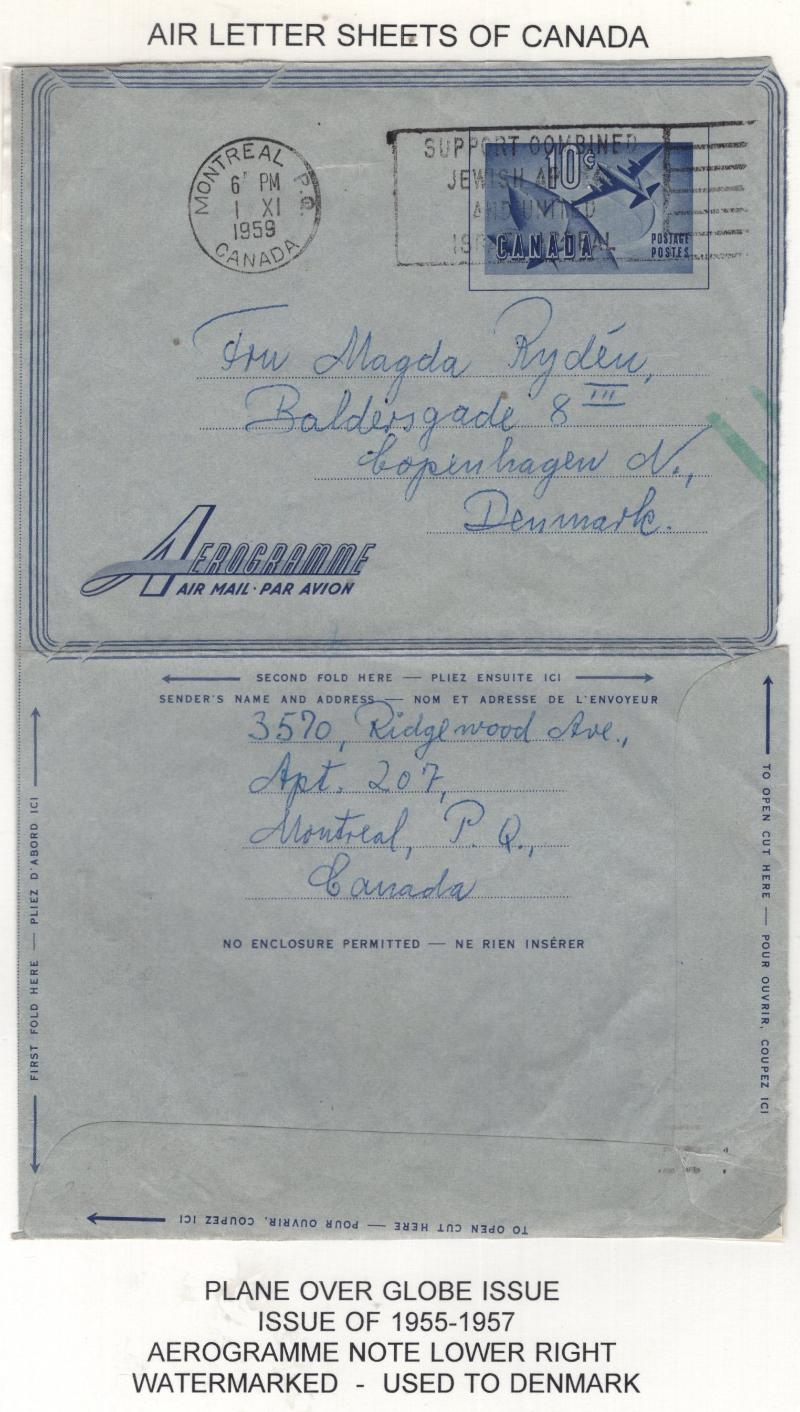 AIR LETTER SHEETS OF CANADA
MONTREAL P.Q.
6 PM
1 XI
1959
CANADA
SUPPORT COMBINED
JEWISH APPEAL
AND UNITED
ISRAEL APPEAL
10¢
CANADA
POSTAGE
POSTES
Fru Magda Rydén,
Baldersgade 8 III
Copenhagen N.,
Denmark.
AEROGRAMME
AIR MAIL · PAR AVION
SECOND FOLD HERE — PLIEZ ENSUITE ICI
SENDER'S NAME AND ADDRESS — NOM ET ADRESSE DE L'ENVOYEUR
3570, Ridgewood Ave.,
Apt. 207,
Montreal, P. Q.,
Canada
NO ENCLOSURE PERMITTED — NE RIEN INSÉRER
FIRST FOLD HERE — PLIEZ D'ABORD ICI
TO OPEN CUT HERE — POUR OUVRIR, COUPEZ ICI
TO OPEN CUT HERE — POUR OUVRIR, COUPEZ ICI
PLANE OVER GLOBE ISSUE
ISSUE OF 1955-1957
AEROGRAMME NOTE LOWER RIGHT
WATERMARKED - USED TO DENMARK